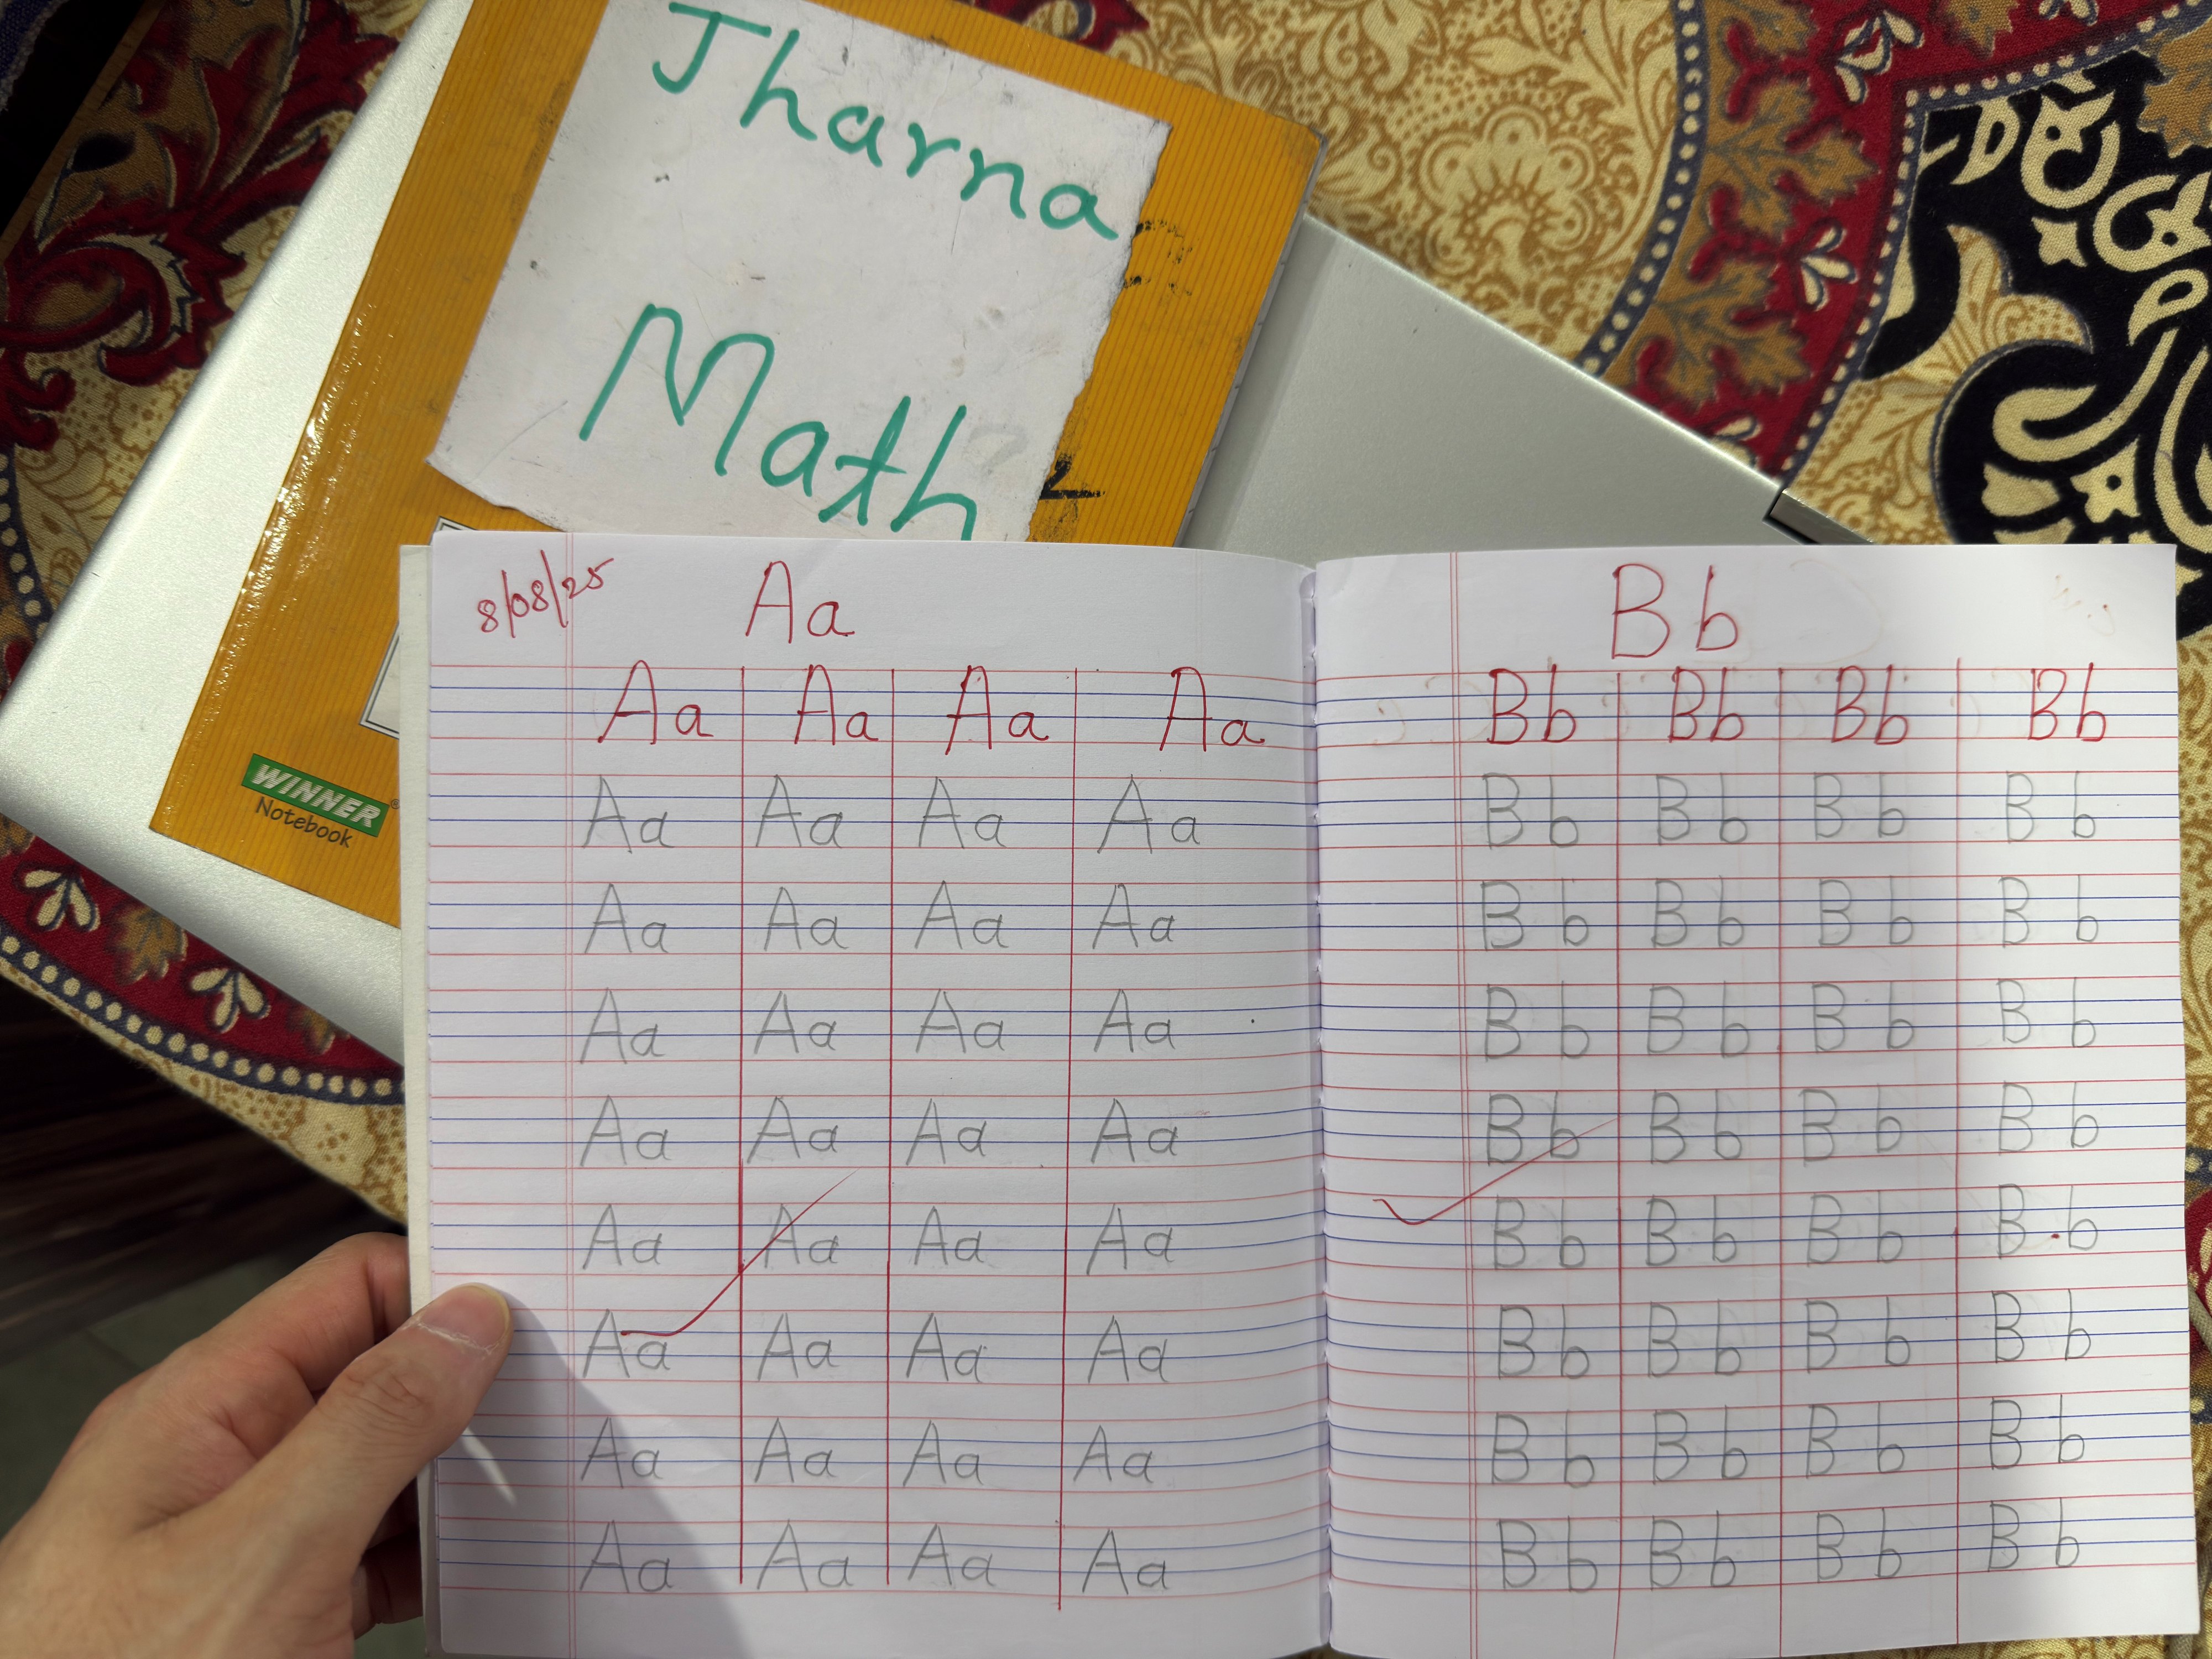 Jharna
Math
WINNER
Notebook
8/08/25
Aa
Aa Aa Aa Aa
Aa Aa Aa Aa
Aa Aa Aa Aa
Aa Aa Aa Aa
Aa Aa Aa Aa
Aa Aa Aa Aa
Aa Aa Aa Aa
Aa Aa Aa Aa
Aa Aa Aa Aa
Bb
Bb Bb Bb Bb
Bb Bb Bb Bb
Bb Bb Bb Bb
Bb Bb Bb Bb
Bb Bb Bb Bb
Bb Bb Bb Bb
Bb Bb Bb Bb
Bb Bb Bb Bb
Bb Bb Bb Bb